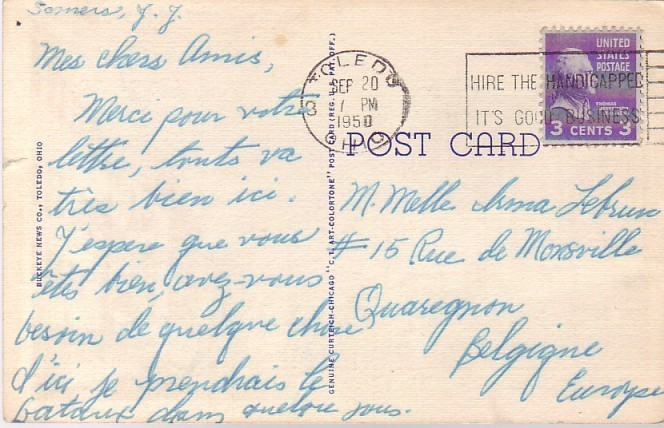 Somers, J. J.
Mes chers Amis,
Merci pour votre
lettre, touts va
très bien ici.
J'espere que vous
êtes bien, avez-vous
besoin de quelque chose
d'ici je prendrais le
bataux dans quelque jous.
BUCKEYE NEWS CO., TOLEDO, OHIO
GENUINE CURTEICH-CHICAGO "C.T. ART-COLORTONE" POST CARD (REG. U.S. PAT. OFF.)
TOLEDO
SEP 20
7 PM
1950
OHIO
HIRE THE HANDICAPPED
IT'S GOOD BUSINESS
UNITED
STATES
POSTAGE
THOMAS
3 CENTS 3
POST CARD
M. Melle Irma Lebrun
# 15 Rue de Monsville
Quaregnon
Belgigne
Europe